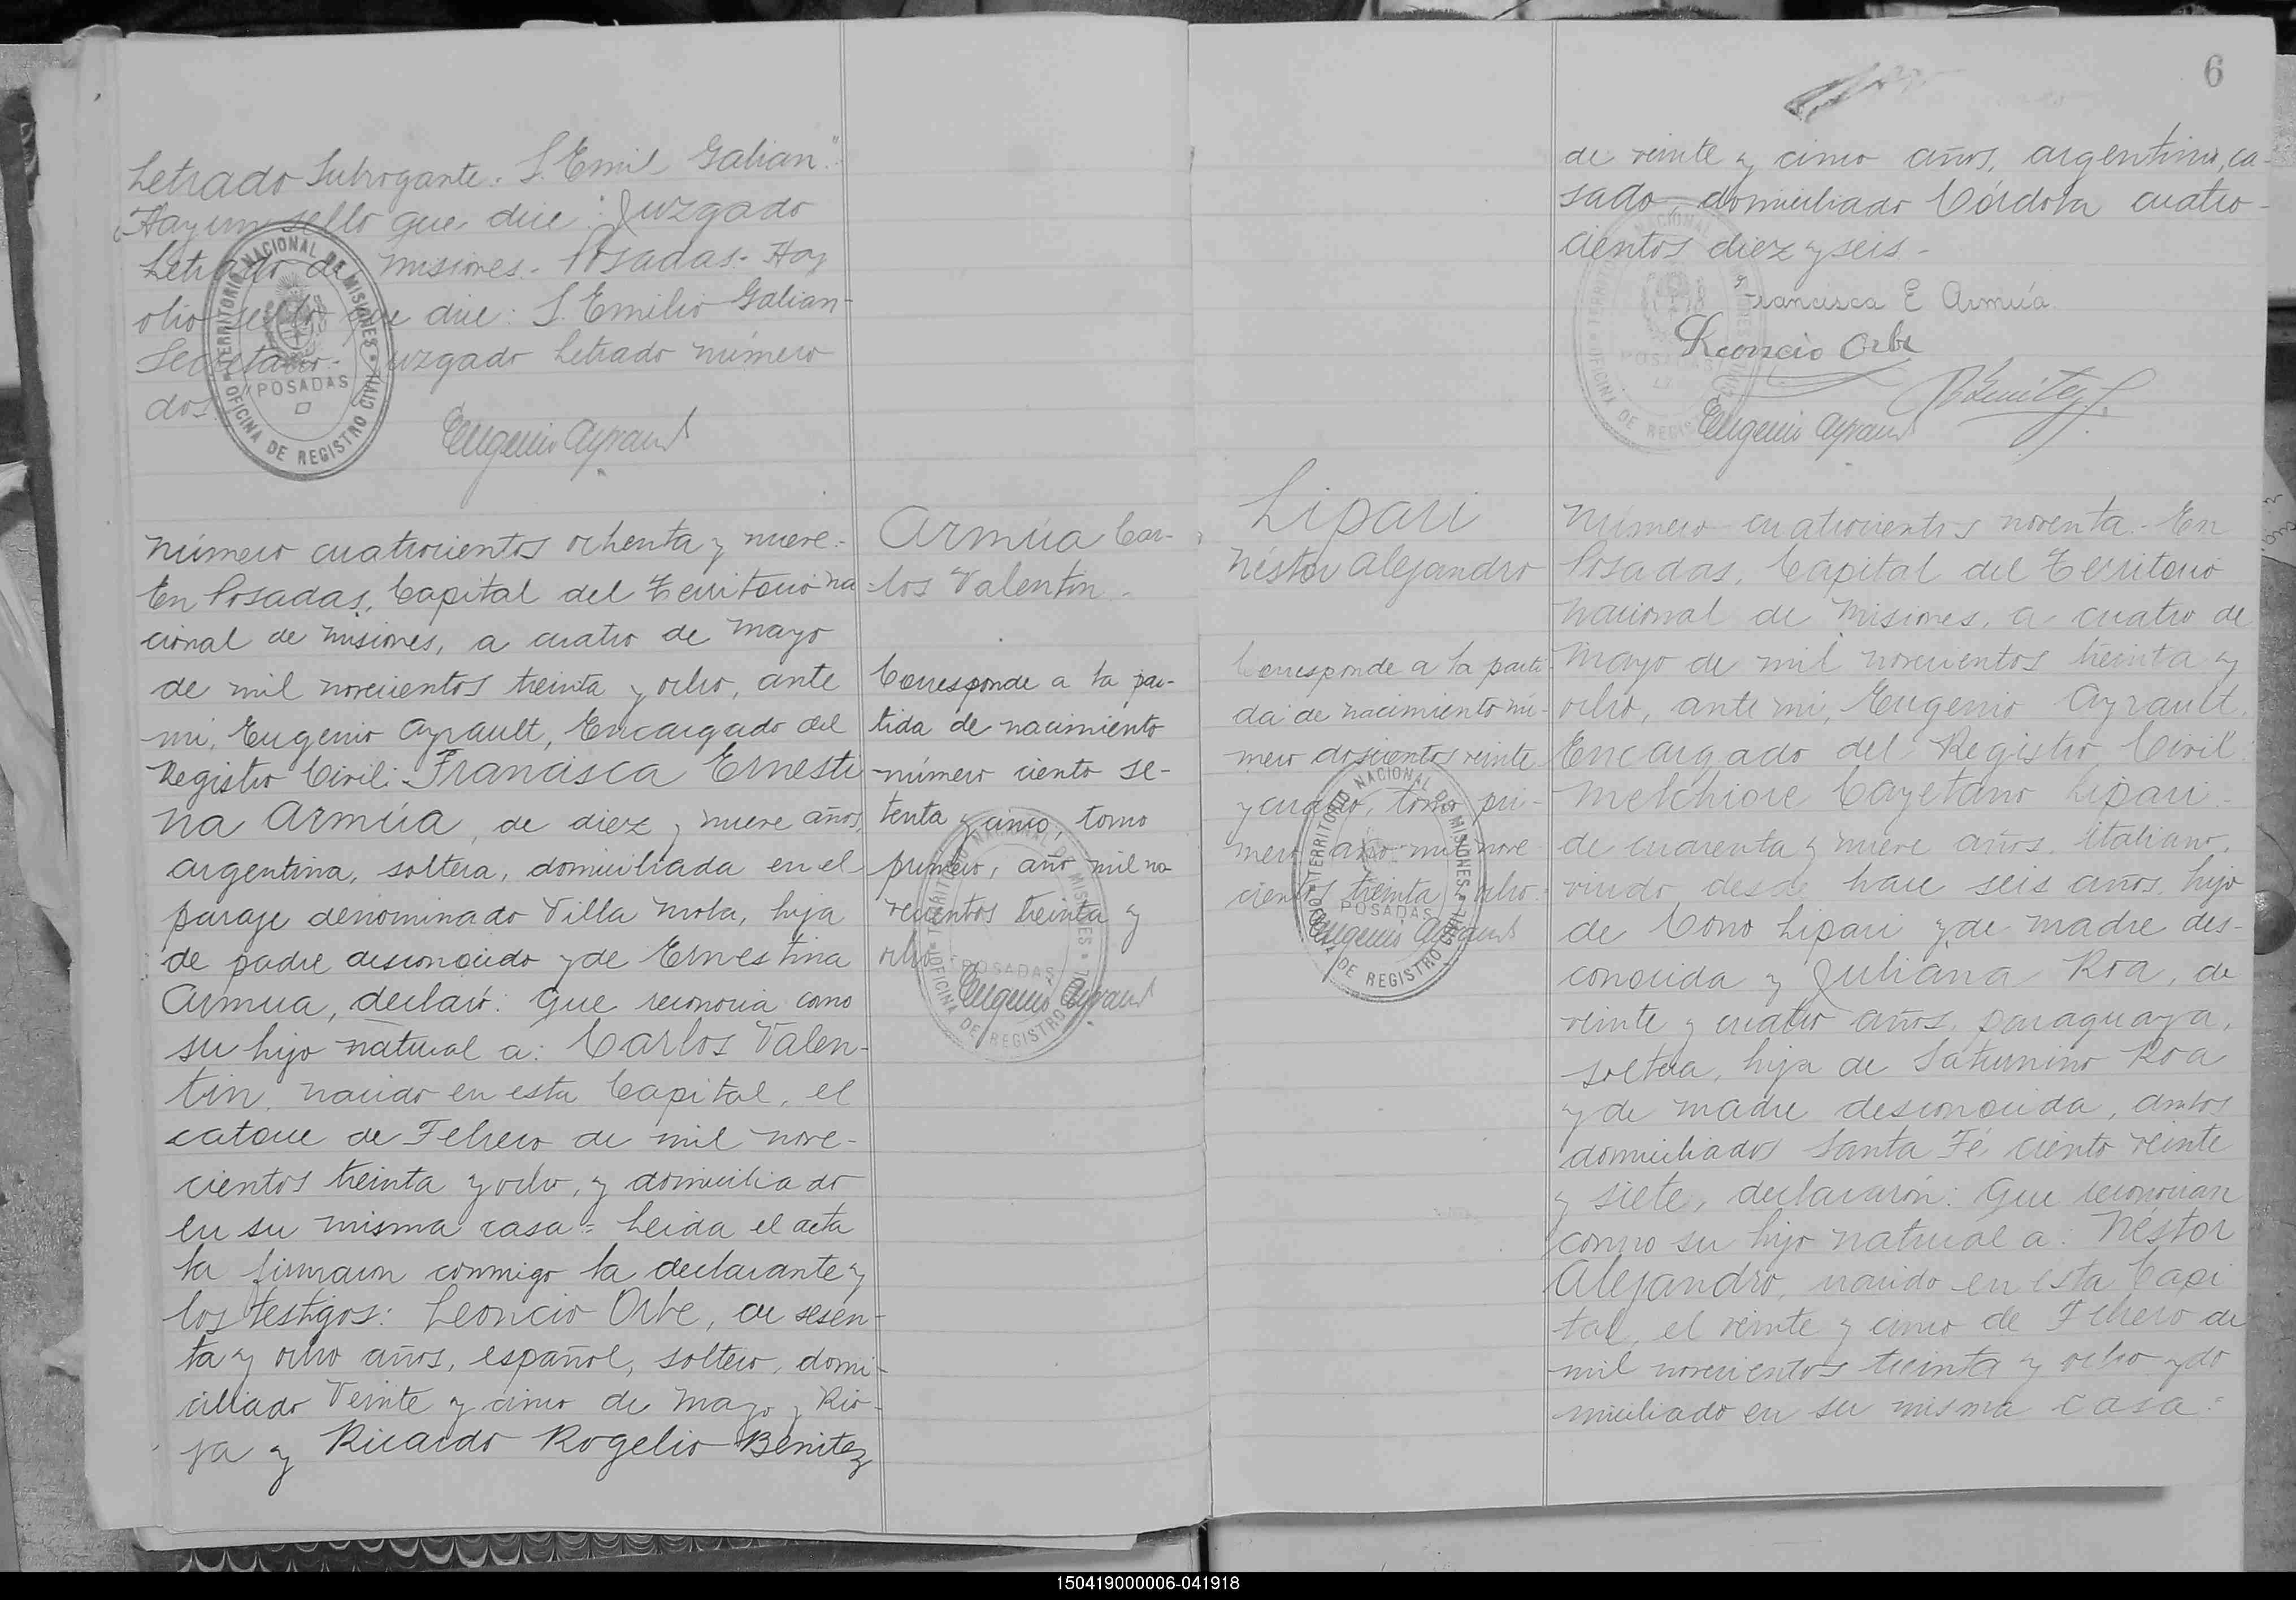 Letrado Subrogante. S. Emil Galian".
Hay un sello que dice: Juzgado
Letrado de Misiones.- Posadas.- Hay
otro sello que dice: S. Emilio Galian-
Secretario- Juzgado Letrado número
dos.
TERRITORIO NACIONAL DE MISIONES
POSADAS
OFICINA DE REGISTRO CIVIL
Eugenio Ayrault
Número cuatrocientos ochenta y nueve.-
En Posadas, Capital del Territorio Na
cional de Misiones, a cuatro de Mayo
de mil novecientos treinta y ocho, ante
mi, Eugenio Ayrault, Encargado del
Registro Civil: Francisca Ernesti
na Armúa, de diez y nueve años,
argentina, soltera, domiciliada en el
paraje denominado Villa Mola, hija
de padre desconocido y de Ernestina
Armua, declaró: Que reconocia como
su hijo natural a: Carlos Valen-
tin, nacido en esta Capital, el
catorce de Febrero de mil nove-
cientos treinta y ocho, y domiciliado
en su misma casa = Leida el acta
la firmaron conmigo la declarante y
los testigos: Leoncio Orbe, de sesen-
ta y ocho años, español, soltero, domi-
ciliado Veinte y cinco de Mayo y Rio-
ja y Ricardo Rogelio Benitez
Armúa Car-
los Valentin.
Corresponde a la par-
tida de nacimiento
número ciento se-
tenta y cinco, tomo
primero, año mil no-
vecientos treinta y
ocho
TERRITORIO NACIONAL DE MISIONES
POSADAS
OFICINA DE REGISTRO CIVIL
Eugenio Ayrault
6
de veinte y cinco años, argentino, ca-
sado, domiciliado Córdoba cuatro-
cientos diez y seis.-
TERRITORIO NACIONAL DE MISIONES
POSADAS
OFICINA DE REGISTRO CIVIL
Francisca E Armúa.
Leoncio Orbe
RBenitez
Eugenio Ayrault
Lipari
Néstor Alejandro
Corresponde a la parti-
da de nacimiento nú-
mero doscientos veinte
y cuatro, tomo pri-
mero año mil nove
cientos treinta y ocho.
TERRITORIO NACIONAL DE MISIONES
POSADAS
OFICINA DE REGISTRO CIVIL
Eugenio Ayrault
Número cuatrocientos noventa.- En
Posadas, Capital del Territorio
Nacional de Misiones, a cuatro de
Mayo de mil novecientos treinta y
ocho, ante mi, Eugenio Ayrault,
Encargado del Registro Civil:
Melchiore Cayetano Lipari-
de cuarenta y nueve años, italiano,
viudo desde hace seis años, hijo
de Cono Lipari y de madre des-
conocida y Juliana Roa, de
veinte y cuatro años, paraguaya,
soltera, hija de Saturnino Roa
y de madre desconocida, ambos
domiciliados Santa Fé ciento veinte
y siete, declararón: Que reconocian
como su hijo natural a: Néstor
Alejandro, nacido en esta Capi
tal, el veinte y cinco de Febrero de
mil novecientos treinta y ocho y do
miciliado en su misma casa =
150419000006-041918